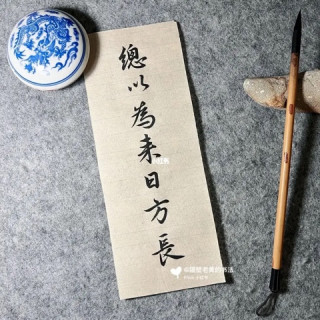 總以為来日方長